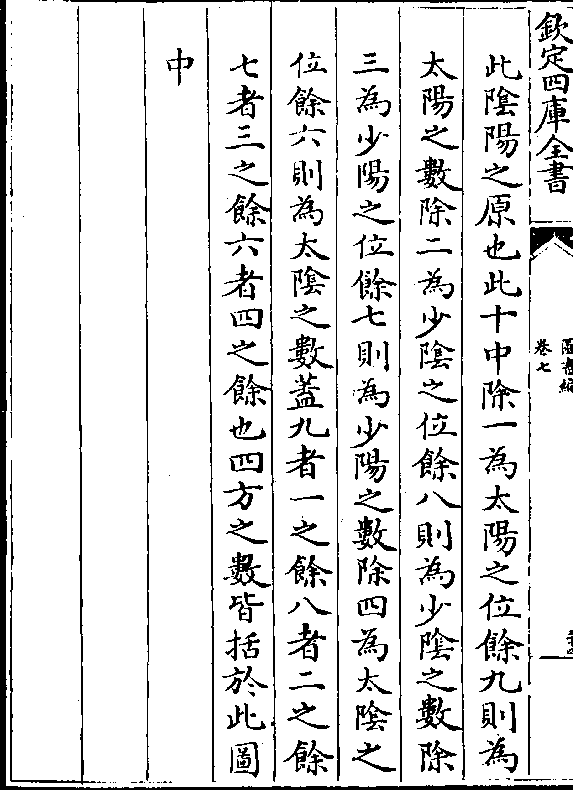 欽定四庫全書
圖書編
卷七
此陰陽之原也此十中除一為太陽之位餘九則為
太陽之數除二為少陰之位餘八則為少陰之數除
三為少陽之位餘七則為少陽之數除四為太陰之
位餘六則為太陰之數蓋九者一之餘八者二之餘
七者三之餘六者四之餘也四方之數皆括於此圖
中